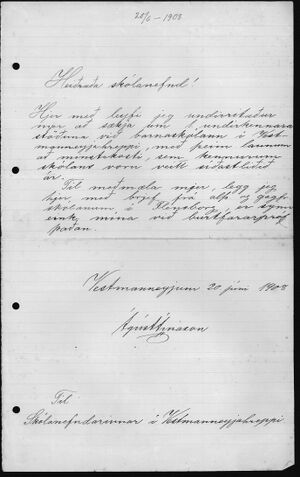 20/6 - 1908
Heiðraða skólanefnd!
Hér með leyfi jeg undirritaður
mjer að sækja um 1 underkennara
stöðuna við barnaskólann í Vest-
manneyjahreppi, með þeim launum
að minnsta kosti, sem kennurum
skólans vom veitt síðastliðið
ár.
Til meðmæla mjer, legg jeg
hjer með brjef frá alþ og gagnfr
skólanum í Flensborg, er sýnir
eink. mína við burtfararpróf
þaðan.
Vestmannaeyjum 20 júní 1908
Ágúst Árnason
Til
Skólanefndarinnar í Vestmannaeyjahreppi